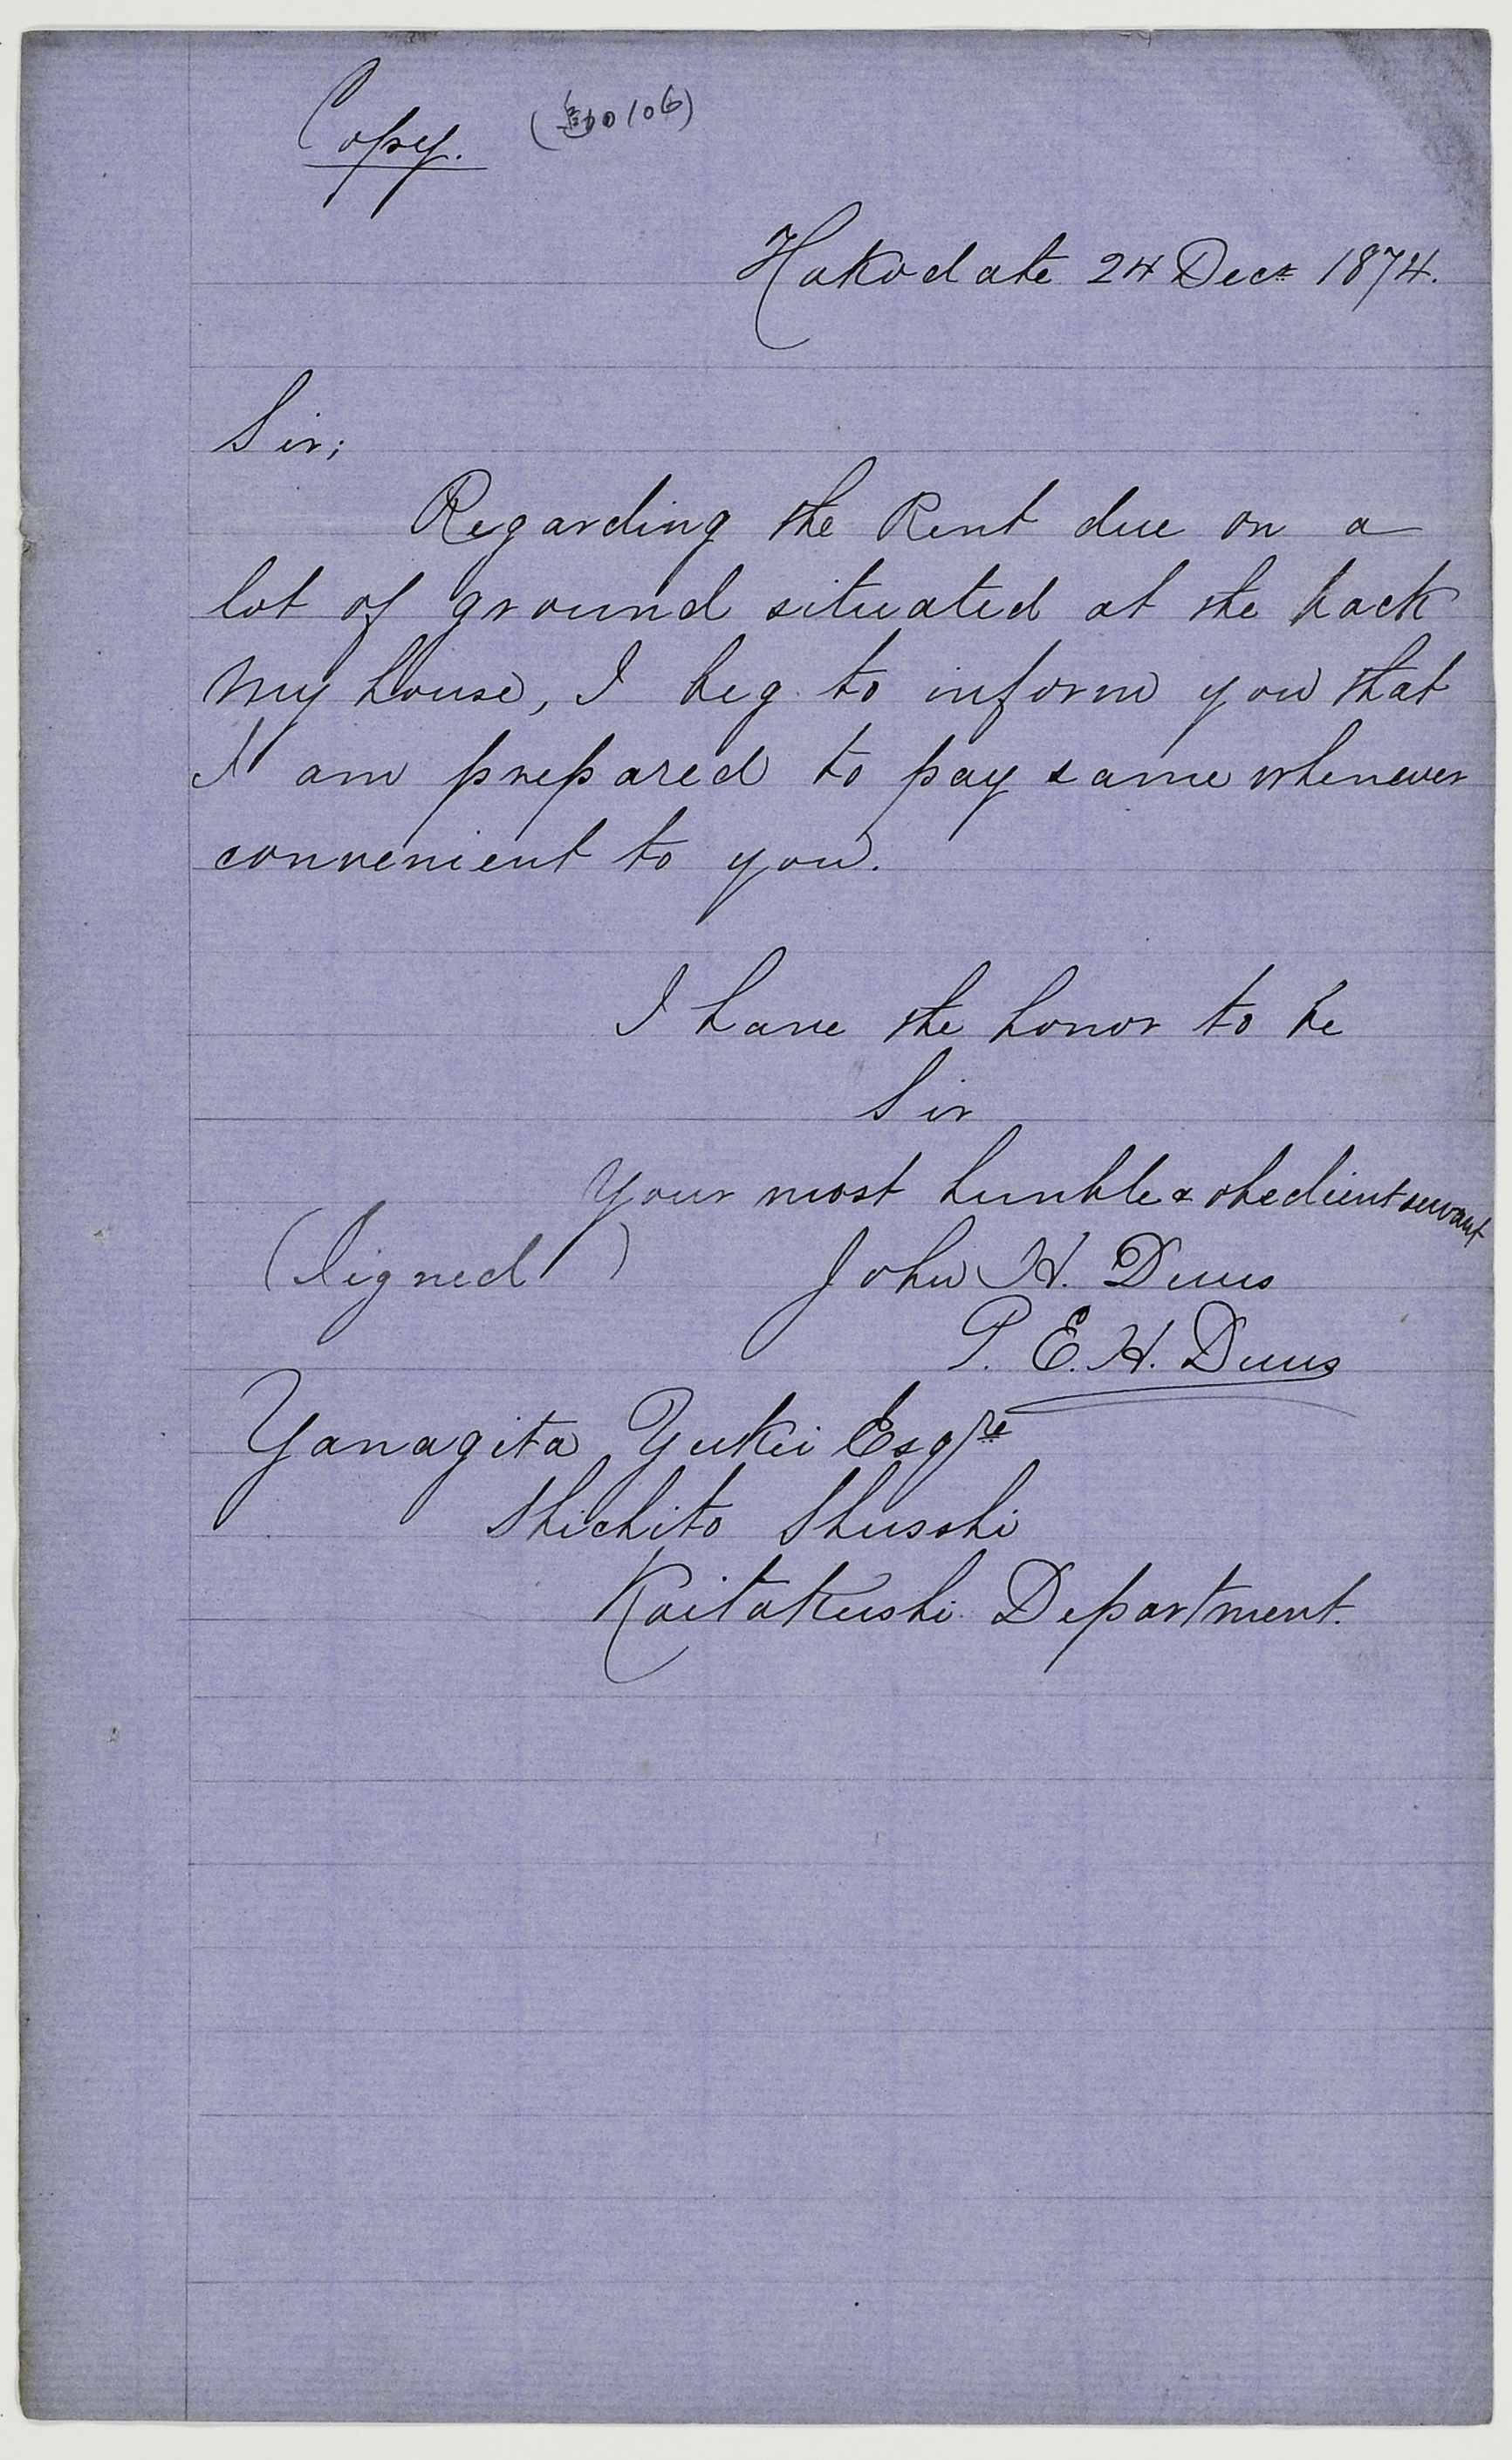 Copy.
Hakodate 24 Decr 1874.
Sir;
Regarding the Rent due on a
lot of ground situated at the back
my house, I beg to inform you that
I am prepared to pay same whenever
convenient to you.
I have the honor to be
Sir
Your most humble & obedient servant
(Signed) John H. Duus
P. E. H. Duus
Yanagita Yukei Esqre
Shichito Shusshi
Kaitakushi Department.